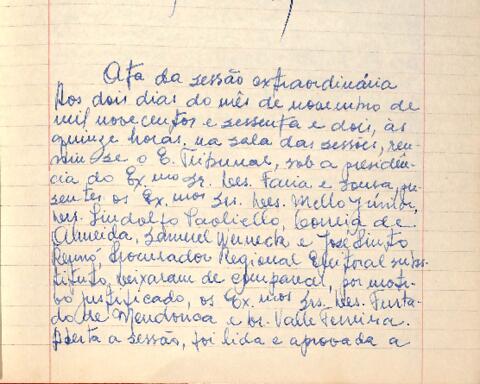 Ata da sessão extraordinária
Aos dois dias do mês de novembro de
mil novecentos e sessenta e dois, às
quinze horas, na sala das sessões, reu-
niu-se o E. Tribunal, sob a presidên-
cia do Exmo Sr. Des. Faria e Sousa, pre-
sentes os Ex. mos Srs. Des. Mello Júnior,
Drs. Lindolfo Paoliello, Correia de
Almeida, Samuel Werneck e José Pinto
Renó, Procurador Regional Eleitoral subs-
tituto, deixaram de comparecer, por moti-
vo justificado, os Ex. mos Srs. Des. Furta-
do de Mendonça e Dr. Valle Ferreira.
Aberta a sessão, foi lida e aprovada a